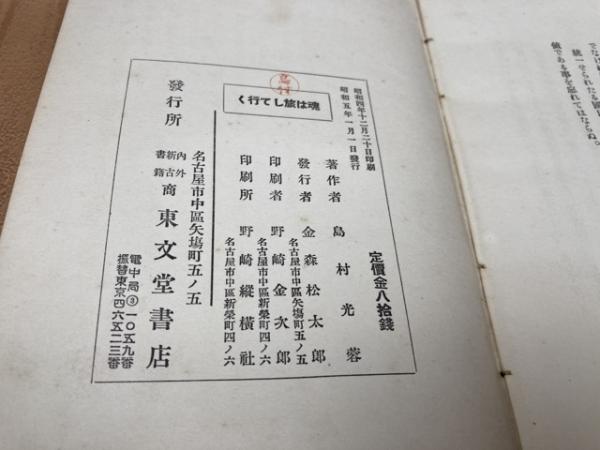 でなけ
統一せられたる國
値である事を忘れてはならぬ。
昭和四年十二月二十日印刷
昭和五年一月一日發行
定價金八拾錢
魂は旅して行く
著作者 島村光蓉
發行者 金森松太郎
名古屋市中區矢場町五ノ五
印刷者 野崎金次郎
名古屋市中區新榮町四ノ六
印刷所 野崎縱橫社
名古屋市中區新榮町四ノ六
名古屋市中區矢塲町五ノ五
發行所 內外新古書籍商 東文堂書店
電中局③一〇五九番
振替東京四六五二三番